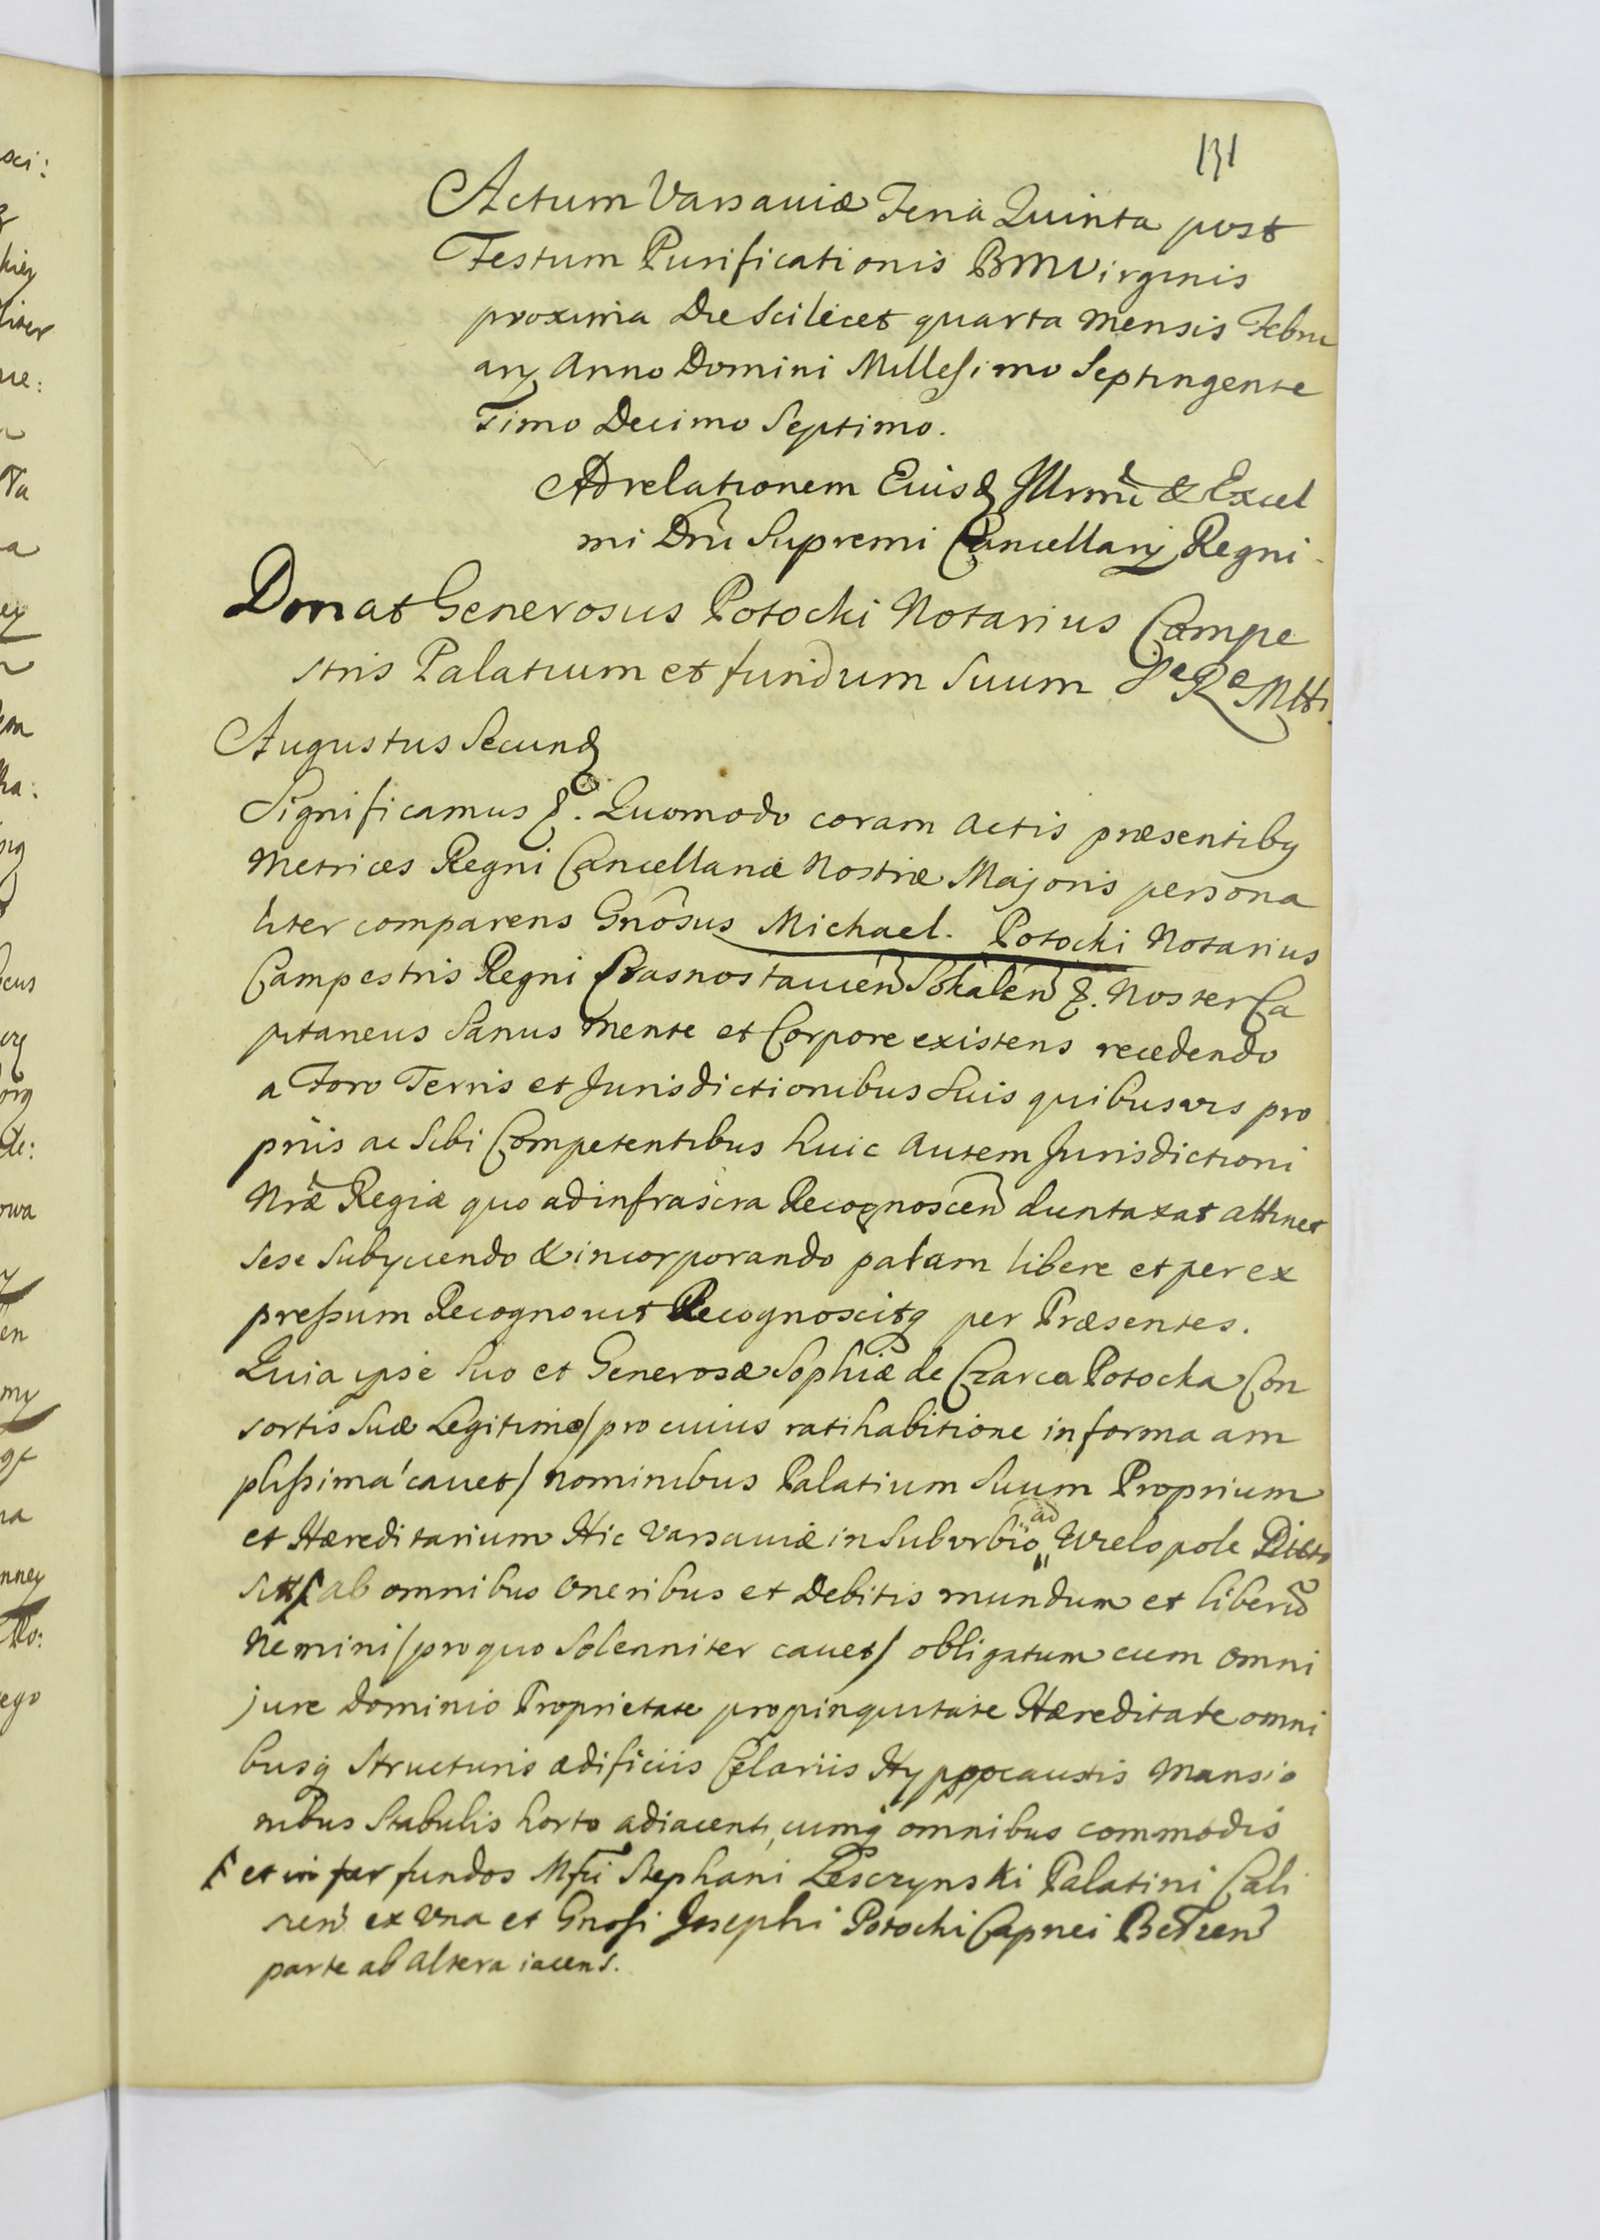 131
Actum Varsaviæ Feria Quinta post
Festum Purificationis BMVirginis
proxima Die Scilicet quarta Mensis Febru
arij Anno Domini Millesimo Septingente
simo Decimo Septimo.
Ad relationem Eiusd Illrmi & Excel
mi Dni Supremi Cancellarij Regni
Donat Generosus Potocki Notarius Campe
stris Palatium et fundum Suum Sae Rae Mtti.
Augustus Secund
Significamus &. Quomodo coram Actis præsentibq
Metrices Regni Cancellariæ Nostræ Majoris persona
liter comparens Gnosus Michael. Potocki Notarius
Campestris Regni Crasnostavien Sokalen &. Noster Ca
pitaneus Sanus mente et Corpore existens recedendo
a Foro Terris et Jurisdictionibus Suis quibusvis pro
priis ac Sibi Competentibus huic Autem Jurisdictioni
Nræ Regiæ quo ad infrascra Recognoscen duntaxat attinet
sese Subijciendo & incorporando palam libere et per ex
pressum Recognovit Recognoscitq per Præsentes.
Quia ipse Suo et Generosæ Sophiæ de Czarca Potocka Con
sortis Suæ Legitimæ/ pro cuius ratihabitione in forma am
plissima cavet/ nominibus Palatium Suum Proprium
et Hæreditarium Hic Varsaviæ in Suburbio ad Wielopole Dicto
ab omnibus Oneribus et Debitis mundum et liberu
Nemini /pro quo Solenniter cavet/ obligatum cum Omni
jure Dominio Proprietate propinquitate Hæreditate omni
busq Structuris ædificiis Celariis Hyppocaustis Mansio
nibus Stabulis horto adiacenti, cumq omnibus commodis
et inter fundos Mfci Stephani Lesczynski Palatini Cali
sien ex Una et Gnosi Josephi Potocki Capnei
parte ab Altera iacens.